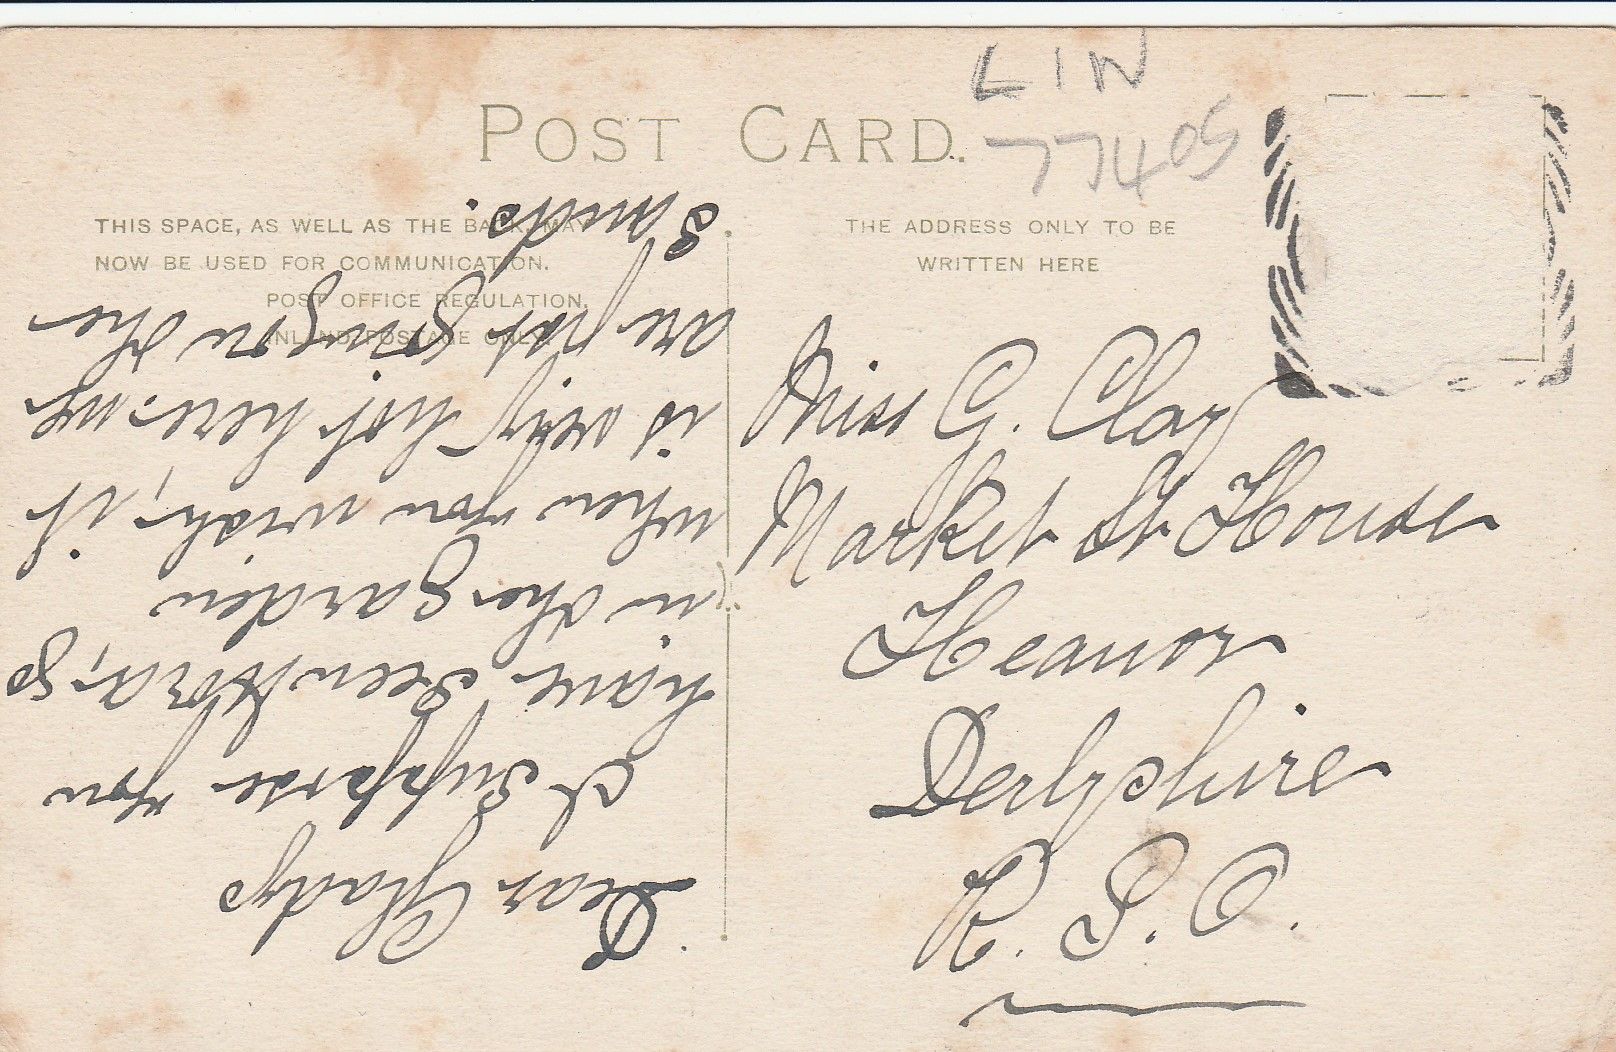 LIN
77405
POST CARD.
THIS SPACE, AS WELL AS THE BACK, MAY
NOW BE USED FOR COMMUNICATION.
POST OFFICE REGULATION.
INLAND POSTAGE ONLY.
THE ADDRESS ONLY TO BE
WRITTEN HERE
Miss G. Clay
Market St House
Heanor
Derbyshire
R. S. O.
Dear Gladys
I suppose you
have seen Nora, go
in the garden
when you wish, it
is very hot here. we
are not going on the
Sands.